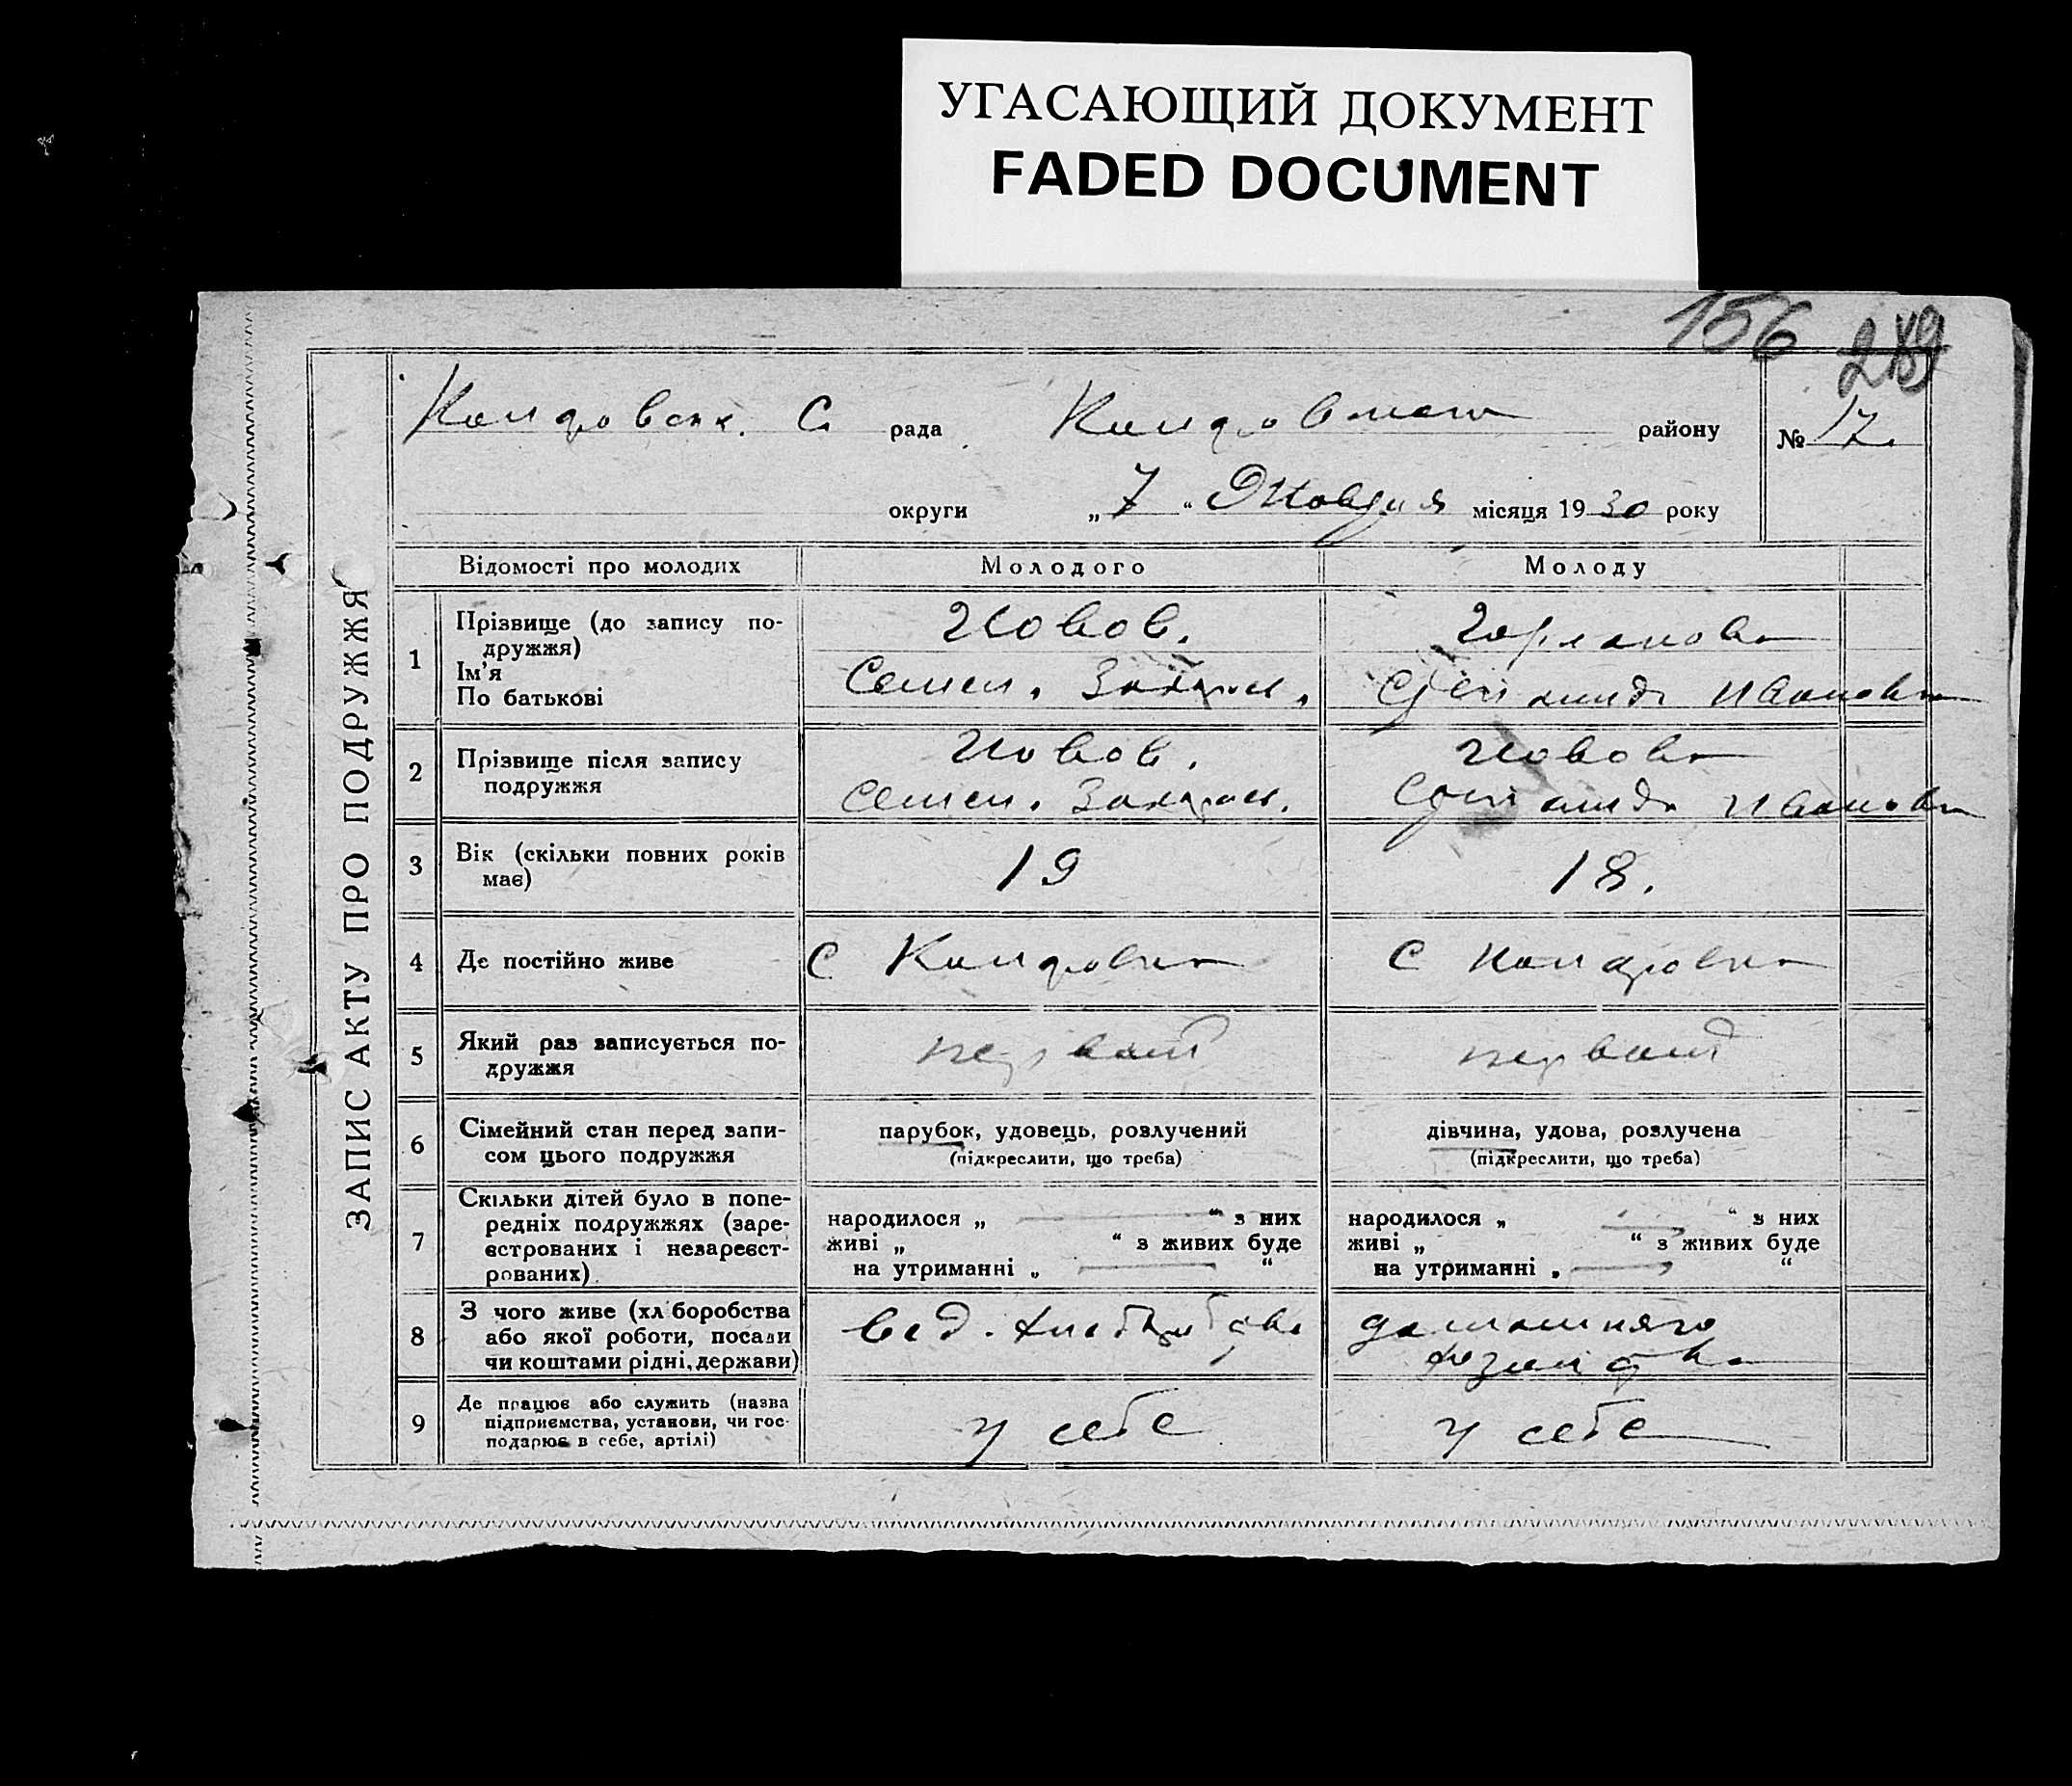 УГАСАЮЩИЙ ДОКУМЕНТ
FADED DOCUMENT
156 289
ЗАПИС АКТУ ПРО ПОДРУЖЖЯ
рада району № 17.
округи „7“ місяця 1930 року
Відомості про молодих Молодого Молоду
1 Прізвище (до запису по-
дружжя)
Ім'я
По батькові
Семен.
2 Прізвище після запису
подружжя
Семен.
3 Вік (скільки повних років
має)
19 18.
4 Де постійно живе
С Кандровка С Кандровка
5 Який раз записується по-
дружжя
первый первый
6 Сімейний стан перед запи-
сом цього подружжя
парубок, удовець, розлучений
(підкреслити, що треба)
дівчина, удова, розлучена
(підкреслити, що треба)
7 Скільки дітей було в попе-
редніх подружжях (заре-
єстрованих і незареєст-
рованих)
народилося „ “ з них
живі „ “ з живих буде
на утриманні „ “
народилося „ “ з них
живі „ “ з живих буде
на утриманні „ “
8 З чого живе (хліборобства
або якої роботи, посади
чи коштами рідні, держави)
домашняго
9 Де працює або служить (назва
підприємства, установи, чи гос-
подарює в себе, артілі)
у себе у себе